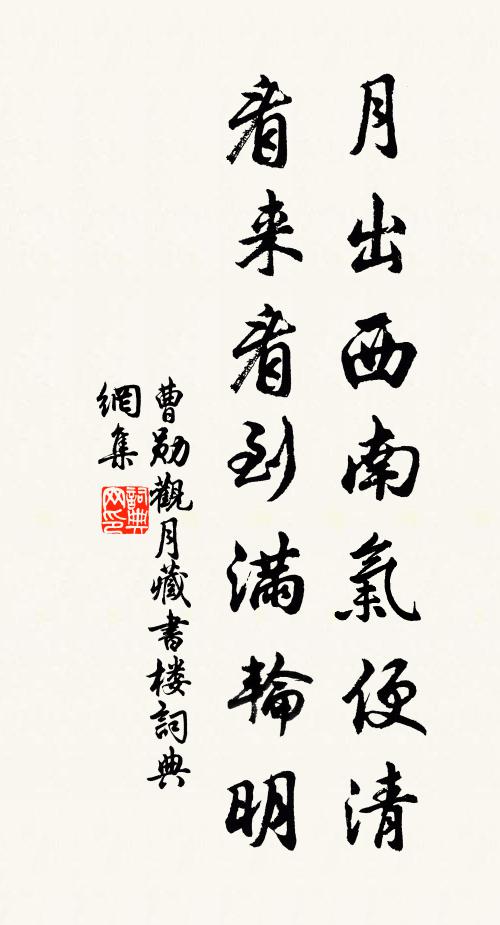 月出西南氣便清
看来看到滿輪明
曹勛觀月藏書楼詞典
網集
詞典
网印